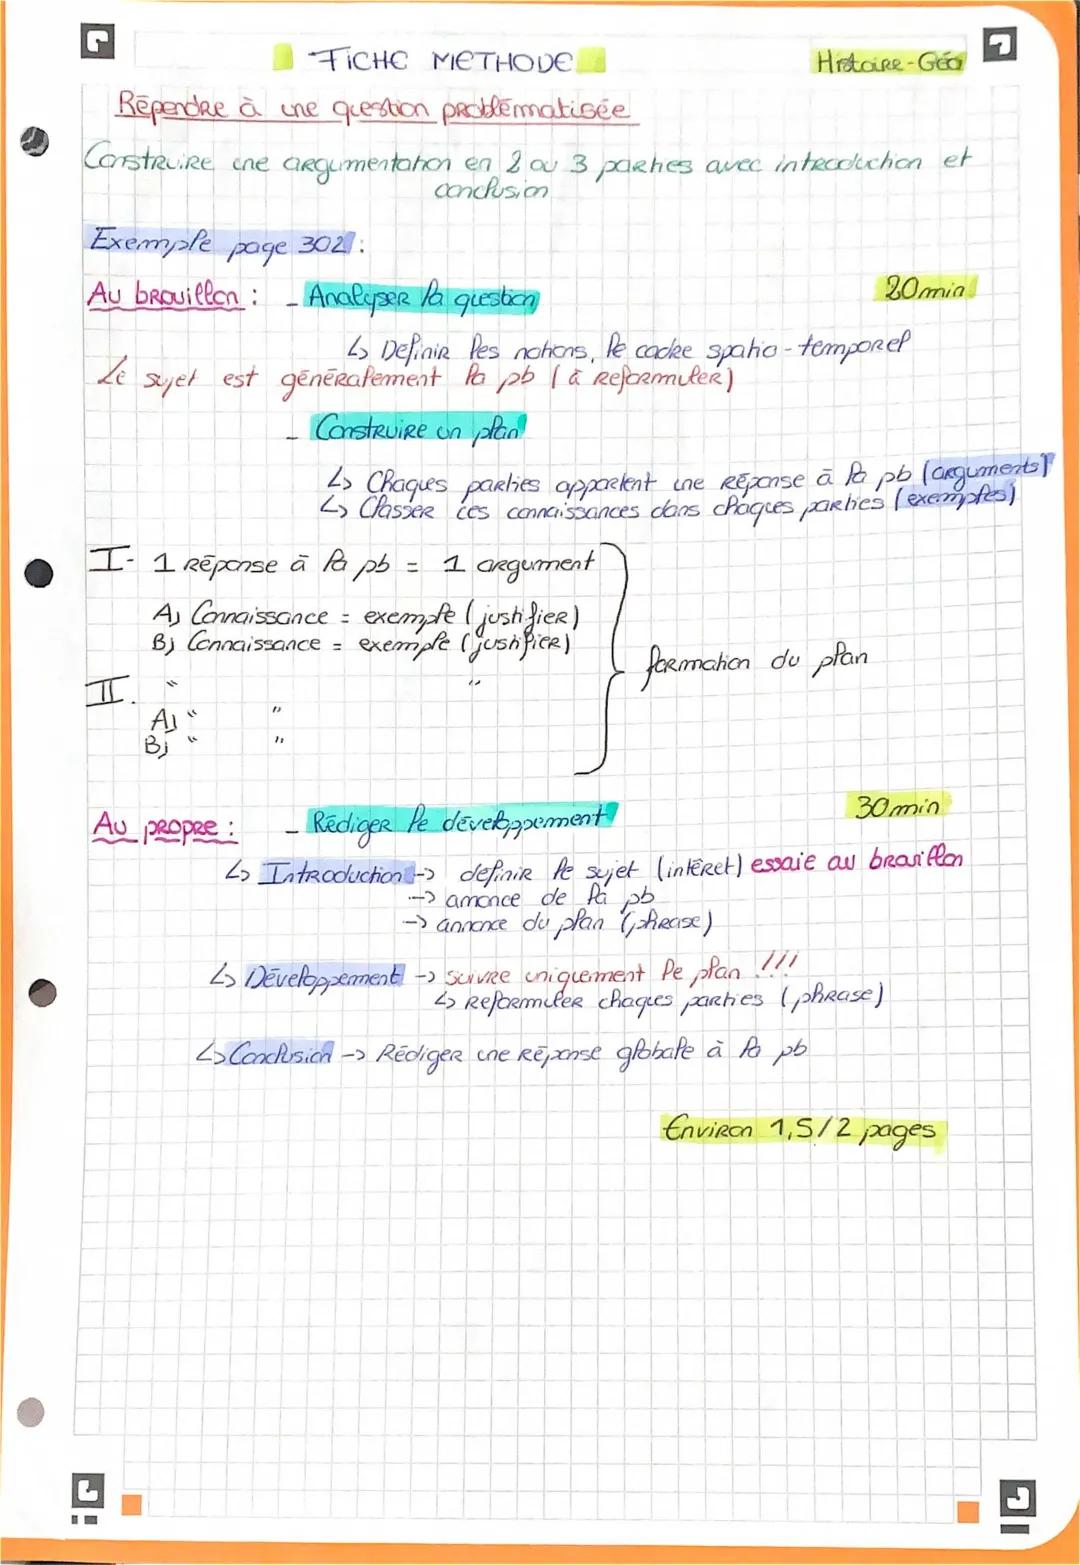 FICHE METHODE
Histoire-Géo
Répondre à une question problématisée
Construire une argumentation en 2 ou 3 parties avec introduction et
conclusion
Exemple page 302 :
Au brouillon : - Analyser la question
20min
↳ Definir les notions, le cadre spatio-temporel
Le sujet est généralement la pb (à reformuler)
- Construire un plan
↳ Chaques parties apportent une réponse à la pb (arguments)
↳ Classer ces connaissances dans chaques parties (exemples)
I- 1 réponse à la pb = 1 argument
A) Connaissance = exemple (justifier)
B) Connaissance = exemple (justifier)
formation du plan
II. " "
A) " "
B) " "
30min
Au propre : - Rédiger le développement
↳ Introduction -> definir le sujet (intéret) essaie au brouillon
-> annonce de la pb
-> annonce du plan (phrase)
↳ Développement -> suivre uniquement le plan !!!
↳ Reformuler chaques parties (phrase)
↳ Conclusion -> Rédiger une réponse globale à la pb
Environ 1,5/2 pages